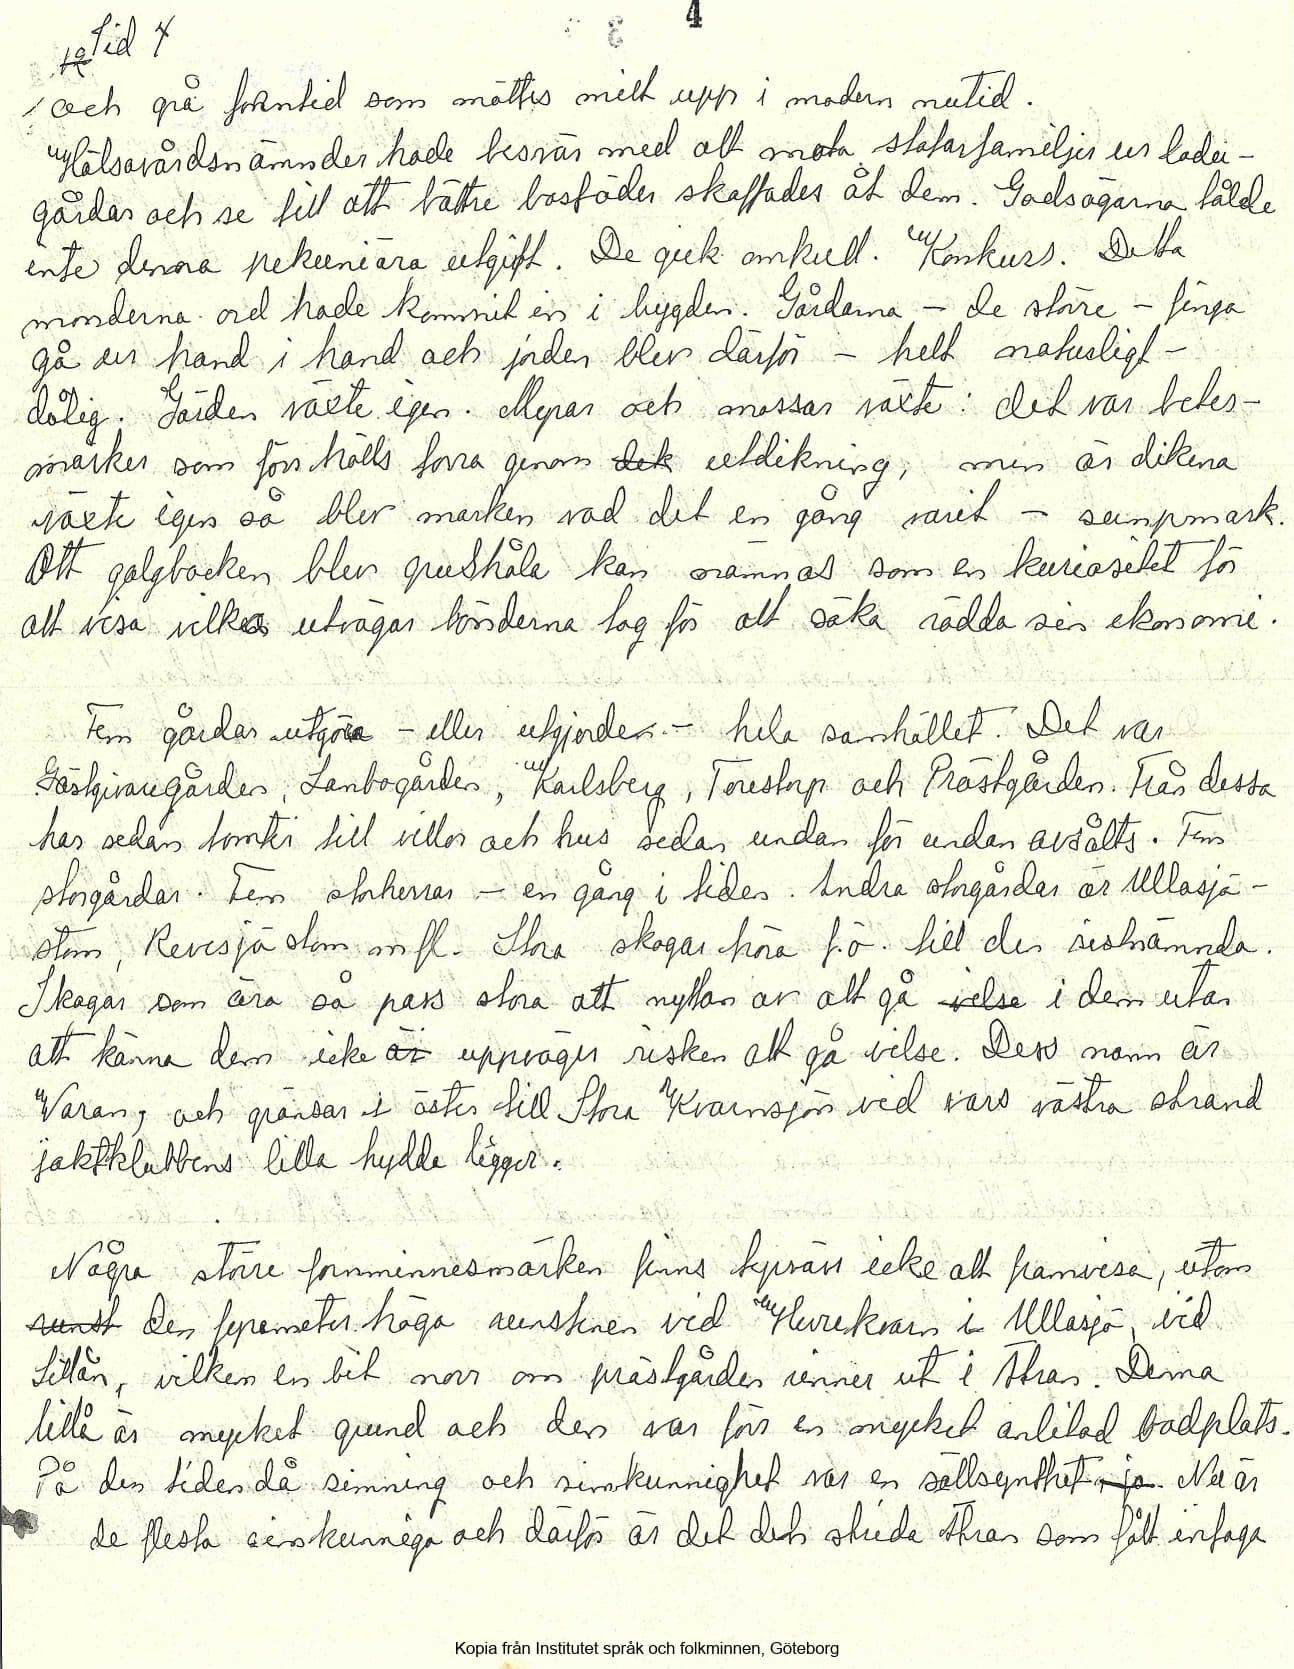 4
Sid 4
och grå forntid som möttes mitt upp i modern nutid.
Hälsovårdsnämnder hade besvär med att mota statarfamiljer ur ladu-
gårdar och se till att bättre bostäder skaffades åt dem. Godsägarna tålde
inte denna pekuniära utgift. De gick omkull. Konkurs. Detta
monderna ord hade kommit in i bygden. Gårdarna – de större – finga
gå ur hand i hand och jorden blev därför – helt naturligt –
dålig. Gärden växte igen. Myrar och mossar växte: det var betes-
marker som förr hölls torra genom dik utdikning, men är dikena
växte igen så blev marken vad det en gång varit – sumpmark.
Att galgbacken blev grushåla kan nämnas som en kuriositet för
att visa vilka utvägar bönderna tog för att söka rädda sin ekonomi.
Fem gårdar utgöra – eller utgjorden – hela samhället. Det var
Gästgivaregården, Lanbogården, Karlsberg, Torestorp och Prästgården. Från dessa
har sedan tomter till villor och hus sedan undan för undan avsålts. Fem
storgårdar. Fem storherrar – en gång i tiden. Andra storgårdar är Ullasjö-
stom, Revesjö stom m fl. Stora skogar höra f.ö. till den sistnämnda.
Skogar som äro så pass stora att nyttan av att gå velse i dem utan
att känna dem icke är uppväger risken att gå vilse. Dess namn är
Varan, och gränsar i öster till Stora Kvarnsjön vid vars västra strand
jaktklubbens lilla hydda ligger.
Några större fornminnesmärken finns tyvärr icke att framvisa, utom
runst den fyrameter höga runstenen vid Hurekvarn i Ullasjö, vid
Lillån, vilken en bit norr om prästgården rinner ut i Ätran. Denna
lillå är mycket grund och den var förr en mycket anlitad badplats.
På den tiden då simning och simkunnighet var en sällsynthet, ja. Nu är
de flesta simkunniga och därför är det den strida Ätran som fått intaga
Kopia från Institutet språk och folkminnen, Göteborg